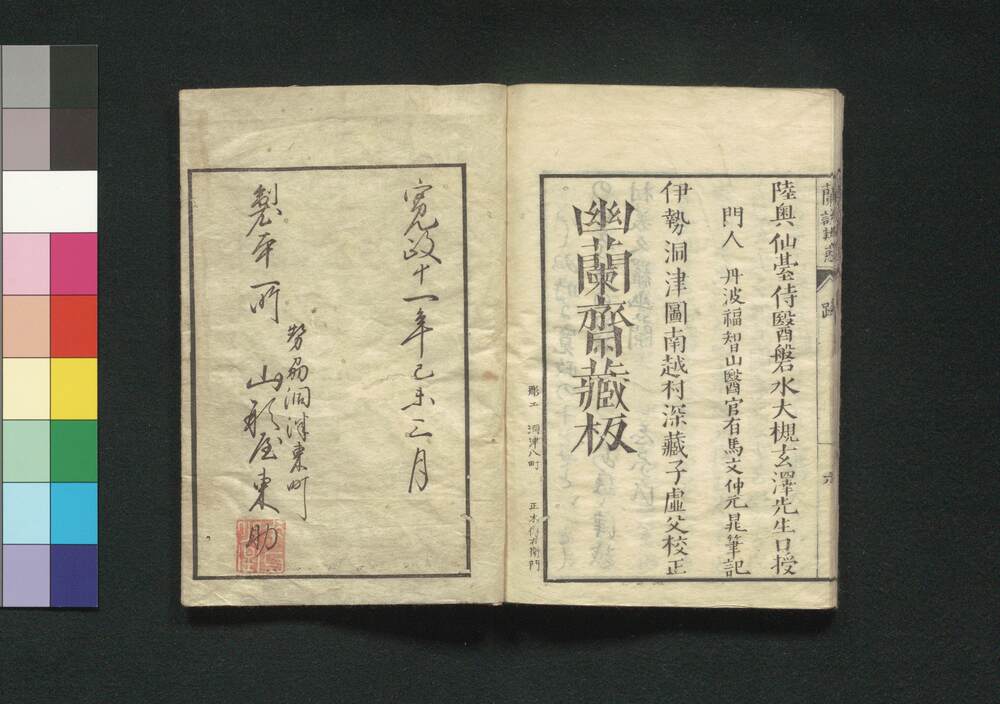 蘭說辨惑 跋 六
陸奥仙臺侍醫磐水大槻玄澤先生口授
門人 丹波福智山醫官有馬文仲元晁筆記
伊勢洞津圖南越村深藏子虚父校正
幽蘭齋藏板
彫工 洞津八町 正木
寛政十一年己未三月
勢州洞津東町
製本所 山形屋東助